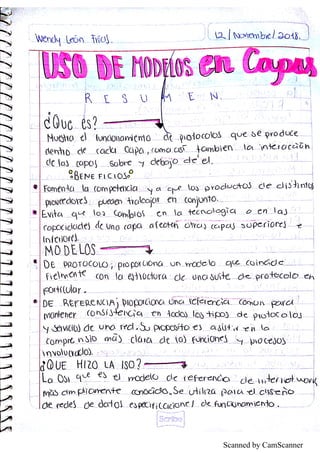 Wendy León Frias.
12/Noviembre/2018.
USO DE MODELOS en Capas
RESUMEN
¿Que es?
Muestra el funcionamiento de protocolos que se produce
dentro de cada capa, como así tambien la interacción
de las capas sobre y debajo de el.
BENEFICIOS
Fomenta la competencia ya que los productos de distintos
proveedores pueden trabajar en conjunto.
Evita que los cambios en la tecnología o en las
capacidades de una capa afecten otras capas superiores e
inferiores.
MODELOS
DE PROTOCOLO; proporciona un modelo que coincide
fielmente con la estructura de una suite de protocolo en
particular.
DE REFERENCIA; proporciona una referencia común para
mantener consistencia en todos los tipos de protocolos
y servicios de una red. Su proposito es asistir en la
comprensión más clara de las funciones y procesos
involucrados.
¿QUE HIZO LA ISO?
La OSI que es el modelo de referencia de internetwork
más ampliamente conocido. Se utiliza para el diseño
de redes de datos especificaciones de funcionamiento.
Scribe
Scanned by CamScanner